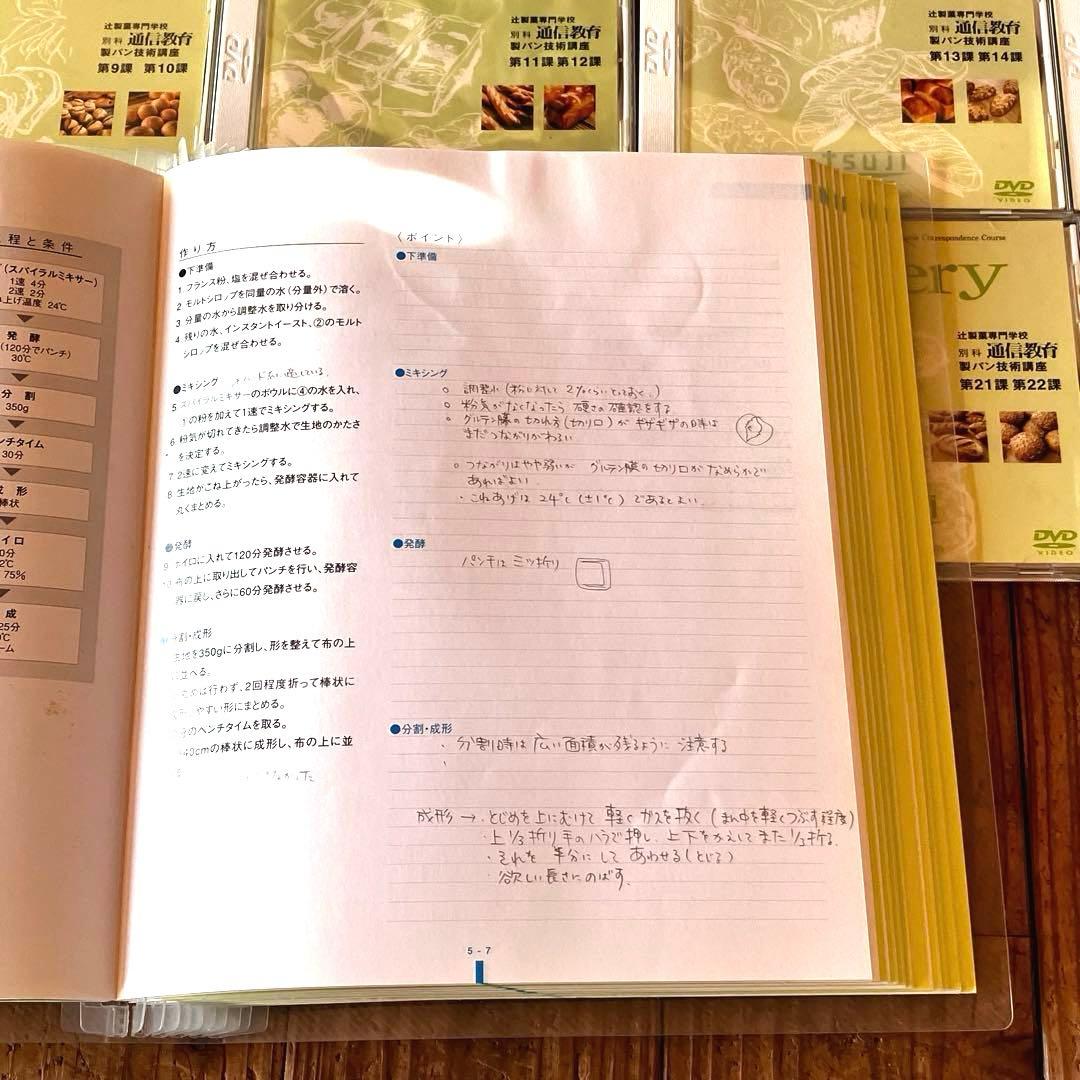 辻製菓専門学校
別科 通信教育
製パン技術講座
第9課 第10課
DVD
辻製菓専門学校
別科 通信教育
製パン技術講座
第11課 第12課
DVD
辻製菓専門学校
別科 通信教育
製パン技術講座
第13課 第14課
DVD
VIDEO
tsuji
Correspondence Course
ery
辻製菓専門学校
別科 通信教育
製パン技術講座
第21課 第22課
DVD
VIDEO
程と条件
(スパイラルミキサー)
1速 4分
2速 2分
上げ温度 24℃
発酵
(120分でパンチ)
30℃
分割
350g
ンチタイム
30分
成形
棒状
イロ
0分
2℃
75%
成
25分
℃
ーム
作り方
●下準備
1 フランス粉、塩を混ぜ合わせる。
2 モルトシロップを同量の水(分量外)で溶く。
3 分量の水から調整水を取り分ける。
4 残りの水、インスタントイースト、②のモルト
シロップを混ぜ合わせる。
●ミキシング
5 スパイラルミキサーのボウルに④の水を入れ、
1の粉を加えて1速でミキシングする。
6 粉気が切れてきたら調整水で生地のかたさ
を決定する。
7 2速に変えてミキシングする。
8 生地がこね上がったら、発酵容器に入れて
丸くまとめる。
●発酵
9 ホイロに入れて120分発酵させる。
布の上に取り出してパンチを行い、発酵容
器に戻し、さらに60分発酵させる。
分割・成形
生地を350gに分割し、形を整えて布の上
に並べる。
は行わず、2回程度折って棒状に
やすい形にまとめる。
のベンチタイムを取る。
40cmの棒状に成形し、布の上に並
なかった
〈ポイント〉
●下準備
●ミキシング
○ 調整水(粉に対して 2%くらいとっておく。)
○ 粉気がなくなったら 硬さの確認をする
○ グルテン膜の切れ方(切り口)が ギザギザの時は
まだつながりがわるい
○ つながりはやや弱いが グルテン膜の切り口が なめらかで
あればよい.
・こねあげは 24℃(±1℃)であるとよい.
●発酵
パンチは 三ツ折り
●分割・成形
・分割時は 広い面積が残るように 注意する
成形 → ・とじめを上にむけて 軽く ガスを抜く(まん中を軽くつぶす程度)
・上 1/3折り 手のハラで押し、上下をかえして また 1/3折る.
・それを 半分にして あわせる(とじる)
・欲しい長さにのばす.
5-7